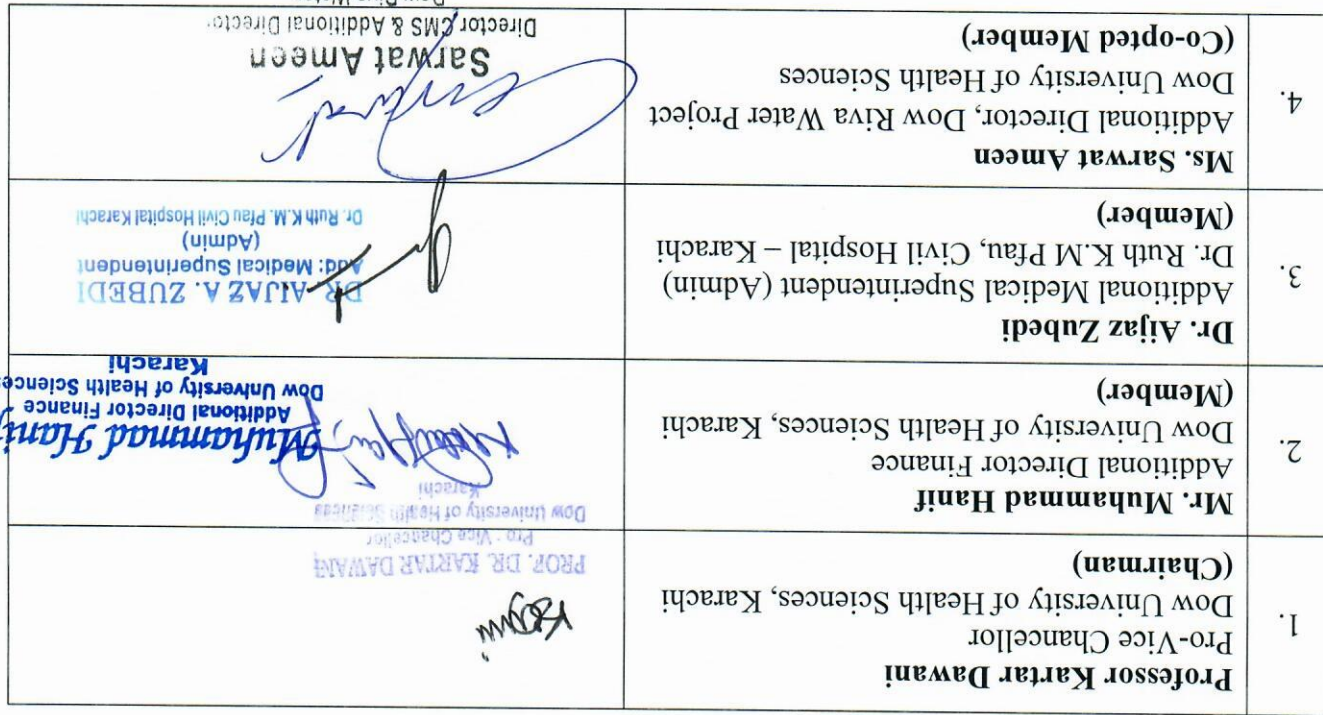 1.
Professor Kartar Dawani
Pro-Vice Chancellor
Dow University of Health Sciences, Karachi
(Chairman)
PROF. DR. KARTAR DAWANI
Pro - Vice Chancellor
Dow University of Health Sciences
Karachi
2.
Mr. Muhammad Hanif
Additional Director Finance
Dow University of Health Sciences, Karachi
(Member)
Muhammad Hanif
Additional Director Finance
Dow University of Health Sciences
Karachi
3.
Dr. Aijaz Zubedi
Additional Medical Superintendent (Admin)
Dr. Ruth K.M Pfau, Civil Hospital – Karachi
(Member)
DR. AIJAZ A. ZUBEDI
Add: Medical Superintendent
(Admin)
Dr. Ruth K.M. Pfau Civil Hospital Karachi
4.
Ms. Sarwat Ameen
Additional Director, Dow Riva Water Project
Dow University of Health Sciences
(Co-opted Member)
Sarwat Ameen
Director CMS & Additional Director